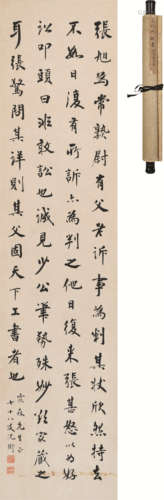 張旭為常熟尉有父老訴事為判其狀欣然持去
不數日復有所訴亦為判之他日復來張甚怒以為好
訟叩頭曰非敢訟也誠見少公筆勢殊妙欲家藏之
耳張驚問其詳則其父固天下工書者也
先生正
七十八叟沈衛